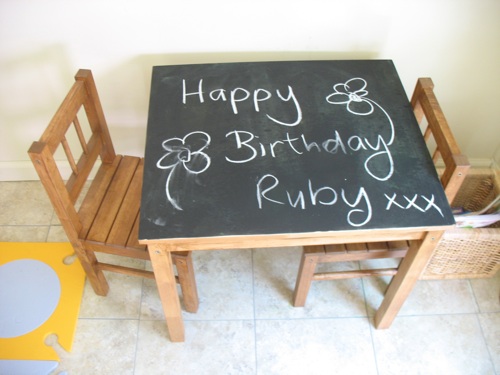 Happy
Birthday
Ruby xxx